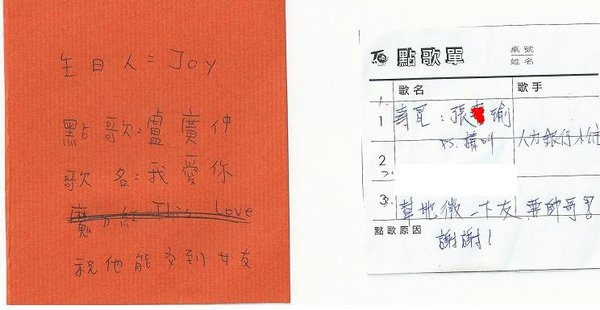 生日人：Joy
點歌：盧廣仲
歌名：我愛你
魔力紅 This Love
祝他能交到女友
點歌單
桌號
姓名
歌名
歌手
1
壽星：張 瑜
人力銀行
2
3
幫她徵一下友 要帥哥
點歌原因
謝謝！